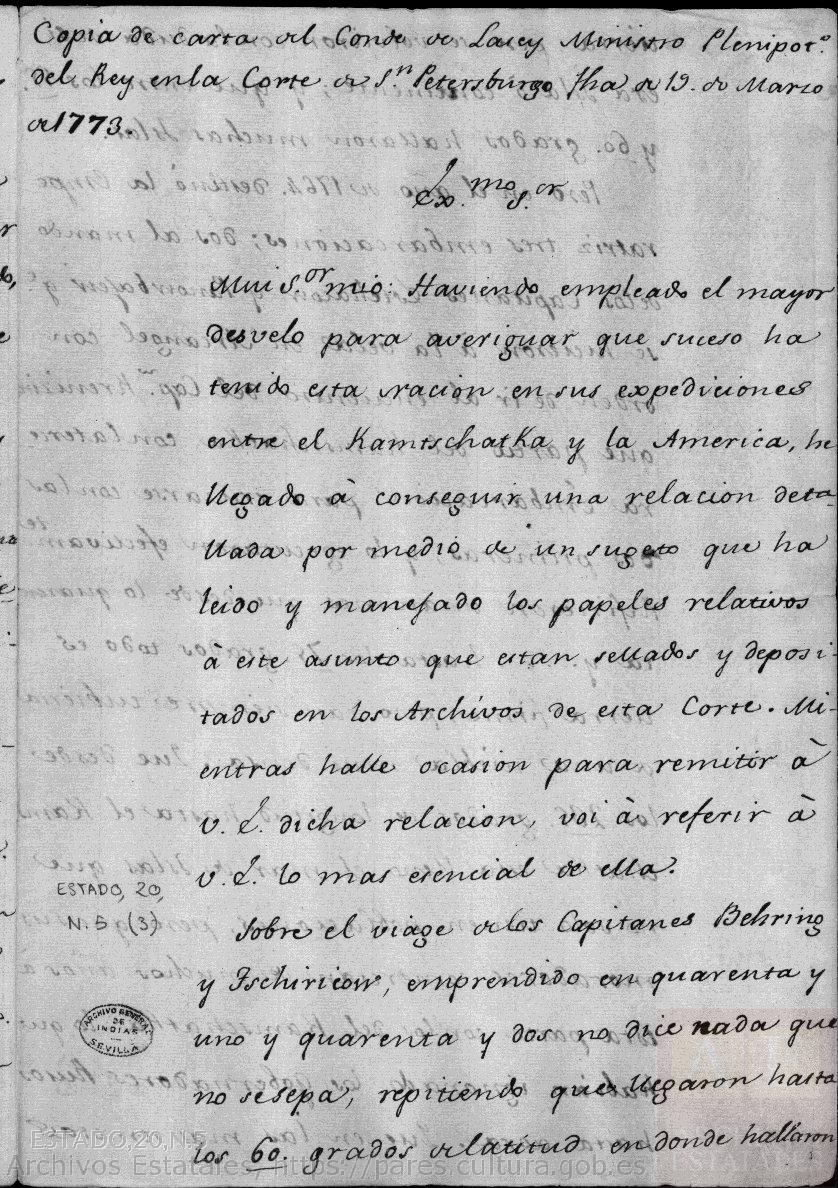 Copia de carta del Conde de Lacy Ministro Plenipot.º
del Rey en la Corte de S.n Petersburgo fha de 19. de Marzo
de 1773.
Ex.mo S.or
Mui S.or mio: Haviendo empleado el mayor
desvelo para averiguar que suceso ha
tenido esta nacion en sus expediciones
entre el Kamtschatka y la America, he
llegado à conseguir una relacion deta-
llada por medio de un sugeto que ha
leido y manejado los papeles relativos
à este asunto que estan sellados y deposi-
tados en los Archivos de esta Corte. Mi-
entras halle ocasion para remitir à
V. E. dicha relacion, voi à referir à
V. E. lo mas esencial de ella.
Sobre el viage de los Capitanes Behring
y Tschiricow, emprendido en quarenta y
uno y quarenta y dos no dice nada que
no se sepa, repitiendo que llegaron hasta
los 60. grados de latitud en donde hallaron
ESTADO, 20,
N. 5 (3)
ARCHIVO GENERAL
DE
INDIAS
SEVILLA
ESTADO,20,N.5
Archivos Estatales, https://pares.cultura.gob.es